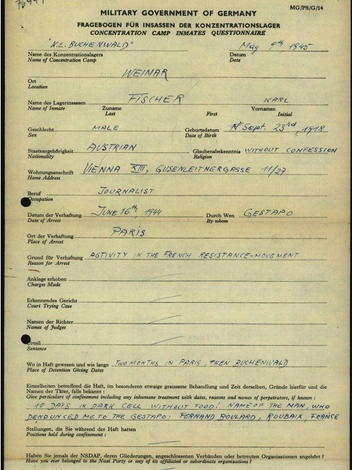 MG/PS/G/14
MILITARY GOVERNMENT OF GERMANY
FRAGEBOGEN FÜR INSASSEN DER KONZENTRATIONSLAGER
CONCENTRATION CAMP INMATES QUESTIONNAIRE
"K.L. BUCHENWALD" May 9th 1945
Name des Konzentrationslagers Datum
Name of Concentration Camp Date
WEIMAR
Ort
Location
FISCHER KARL
Name des Lagerinsassen Zuname Vornamen
Name of Inmate Last Name Initial
Geschlecht MALE Geburtsdatum Sept. 23rd 1918
Sex Date of Birth
Staatsangehörigkeit AUSTRIAN Glaubensbekenntnis WITHOUT CONFESSION
Nationality Religion
Wohnungsanschrift VIENNA XIII, 11/27
Home Address
Beruf
Occupation JOURNALIST
Datum der Verhaftung JUNE 16th, 1944 Durch Wen GESTAPO
Date of Arrest By whom
Ort der Verhaftung PARIS
Place of Arrest
Grund für Verhaftung ACTIVITY IN THE FRENCH RESISTANCE-MOVMENT
Reason for Arrest
Anklage erhoben
Charges Made
Erkennendes Gericht
Court Trying Case
Namen der Richter
Names of Judges
Urteil
Sentence
Wo in Haft gewesen und wie lange TWO MONTHS IN PARIS, THEN BUCHENWALD
Place of Detention Giving Dates
Einzelheiten betreffend die Haft, im besonderen etwaige grausame Behandlung und Zeit derselben, Gründe hierfür und die
Namen der Täter, falls bekannt:
Give particulars of confinement including any inhumane treatment with dates, reasons and names of perpetrators, if known:
10 DAYS IN DARK CELL WITHOUT FOOD! NAME OF THE MAN, WHO
DENOUNCED ME TO THE GESTAPO: FERNAND BOULARD, ROUBAIX FRANCE
Stellungen, die Sie während der Haft hatten
Positions held during confinement:
Haben Sie jemals der NSDAP, deren Gliederungen, angeschlossenen Verbänden oder betreuten Organisationen angehört?
Have you ever belonged to the Nazi Party or any of its affiliated or subordinate organizations?